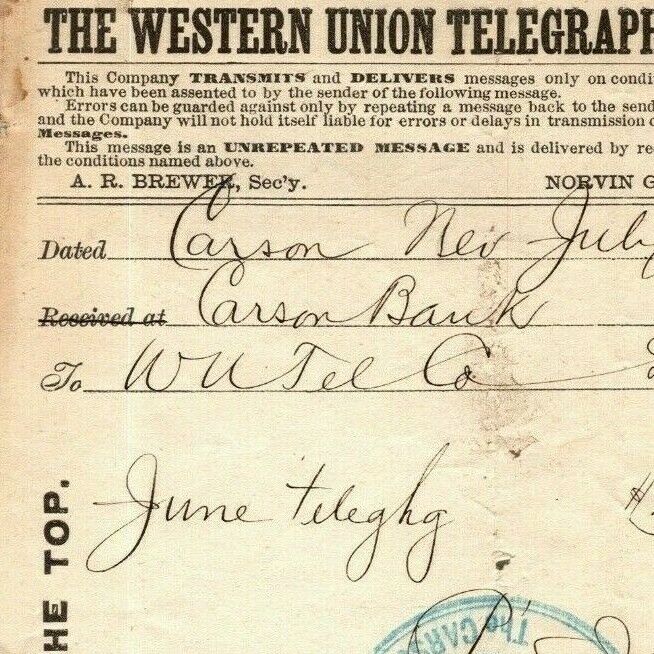 THE WESTERN UNION TELEGRAPH
This Company TRANSMITS and DELIVERS messages only on condi
which have been assented to by the sender of the following message.
Errors can be guarded against only by repeating a message back to the send
and the Company will not hold itself liable for errors or delays in transmission o
Messages.
This message is an UNREPEATED MESSAGE and is delivered by re
the conditions named above.
A. R. BREWER, Sec'y. NORVIN G
Dated Carson Nev July
Received at Carson Bank
To W U Tel Co
June teleghg
HE TOP.
The CARS